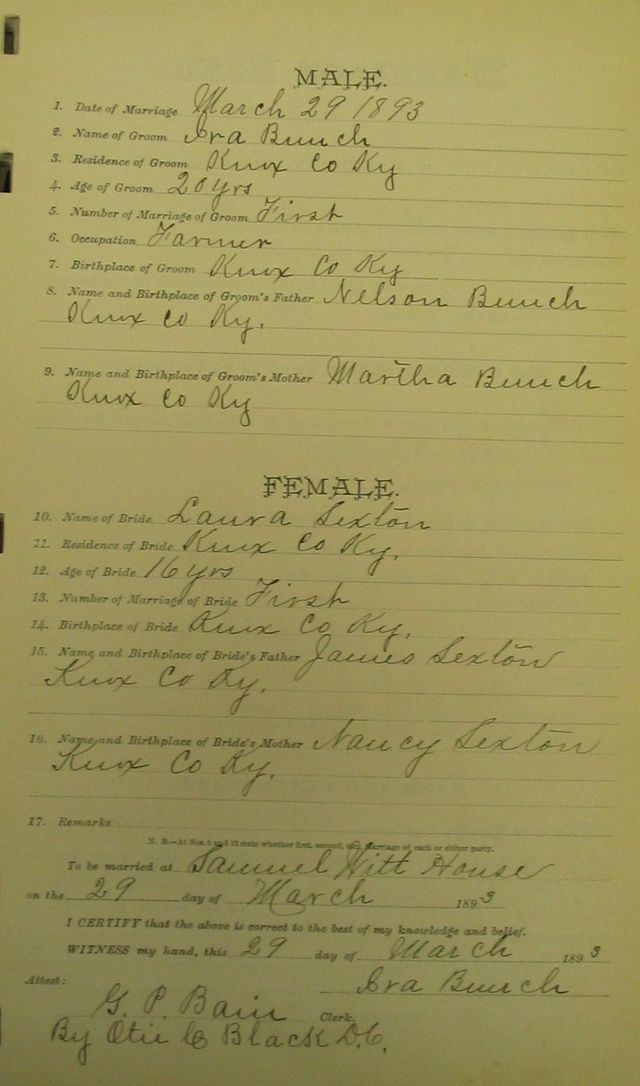 MALE.
1. Date of Marriage March 29 1893
2. Name of Groom Ira Bunch
3. Residence of Groom Knox Co Ky
4. Age of Groom 20 yrs
5. Number of Marriage of Groom First
6. Occupation Farmer
7. Birthplace of Groom Knox Co Ky
8. Name and Birthplace of Groom's Father Nelson Bunch
Knox Co Ky.
9. Name and Birthplace of Groom's Mother Martha Bunch
Knox Co Ky
FEMALE.
10. Name of Bride Laura Sexton
11. Residence of Bride Knox Co Ky.
12. Age of Bride 16 yrs
13. Number of Marriage of Bride First
14. Birthplace of Bride Knox Co Ky.
15. Name and Birthplace of Bride's Father James Sexton
Knox Co Ky.
16. Name and Birthplace of Bride's Mother Nancy Sexton
Knox Co Ky.
17. Remarks
N. B.—At Nos. 5 and 13 state whether first, second, etc., Marriage of each or either party.
To be married at Samuel Hitt House
on the 29 day of March 1893
I CERTIFY that the above is correct to the best of my knowledge and belief.
WITNESS my hand, this 29 day of March 1893
Ira Bunch
Attest:
G. P. Bain Clerk.
By Black D.C.